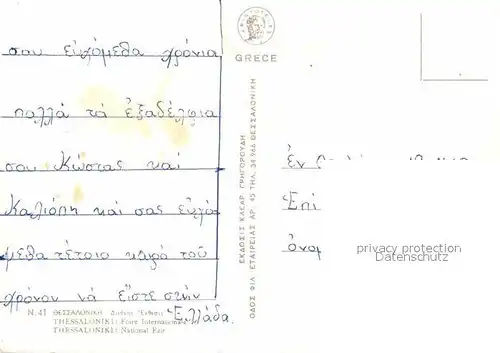 σου εὐχόμεθα χρόνια
πολλά τά ἐξαδέλφια
σου Κώστας καί
Καλιόπη καί σας εὐχό-
μεθα τέτοιο καιρό τοῦ
χρόνου νά εἶστε στήν
Ἑλλάδα.
N. 41 ΘΕΣΣΑΛΟΝΙΚΗ Διεθνής Ἔκθεσις
THESSALONIKI: Foire Internationale
THESSALONIKI: National Fair
GRECE
ΕΚΔΟΣΙΣ ΚΑΙΣΑΡ. ΓΡΗΓΟΡΟΥΔΗ
ΟΔΟΣ ΦΙΛ. ΕΤΑΙΡΕΙΑΣ ΑΡ. 45 ΤΗΛ. 34.946 ΘΕΣΣΑΛΟΝΙΚΗ
Ἐν
Ἐπί
ὀνομ
privacy protection
Datenschutz